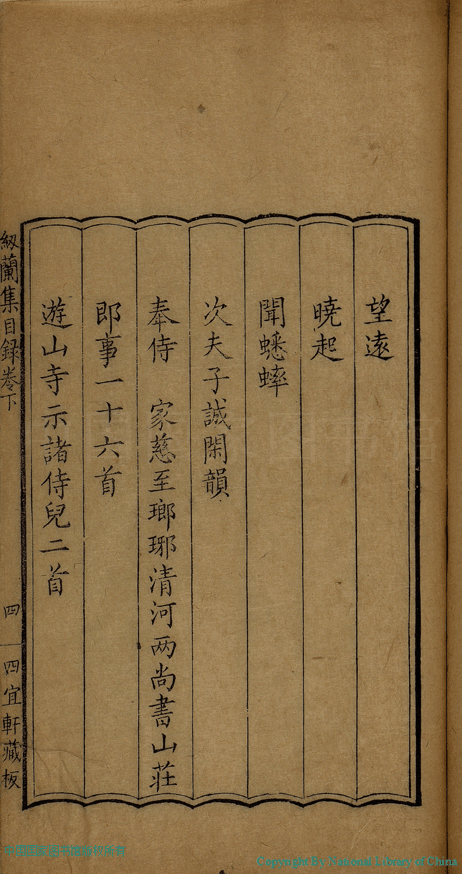 望遠
曉起
聞蟋蟀
次夫子誠閑韻
奉侍　家慈至瑯琊清河两尚書山莊
即事一十六首
遊山寺示諸侍兒二首
紉蘭集目録卷下
四
四宜軒藏板
Copyright By National Library of China